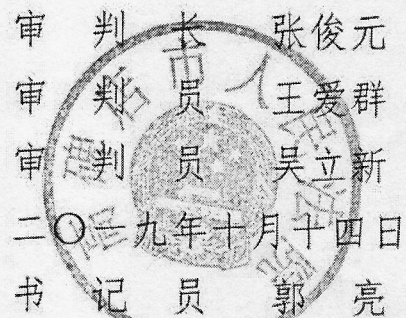 审 判 长 张俊元
审 判 员 王爱群
审 判 员 吴立新
二〇一九年十月十四日
书 记 员 郭 亮